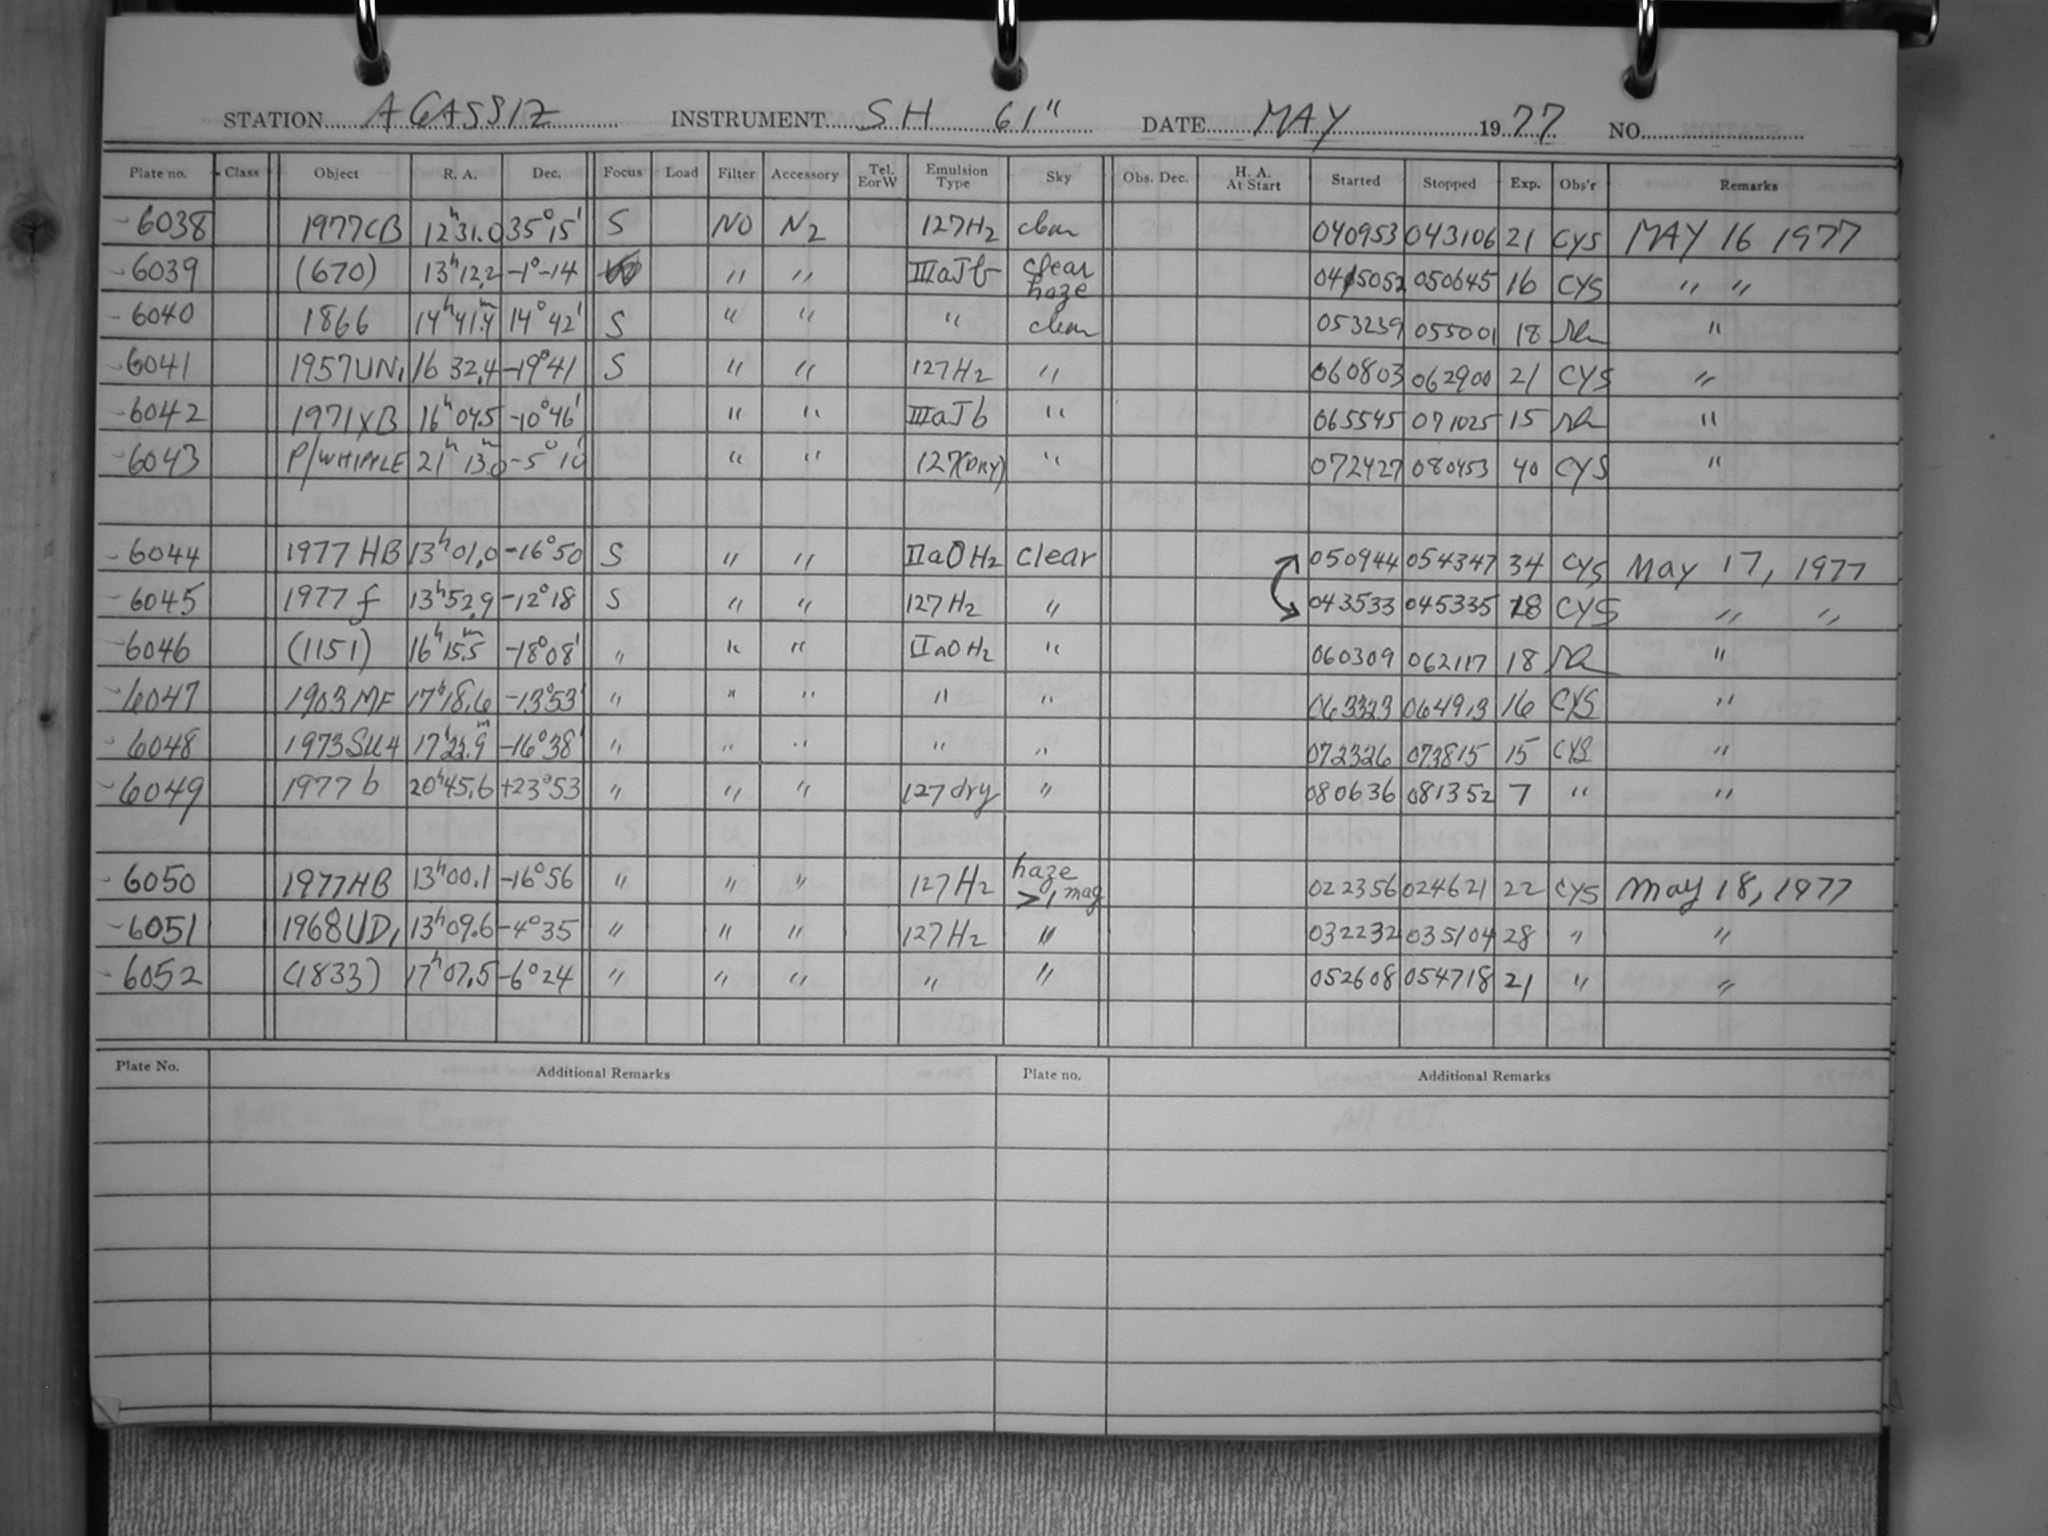 STATION AGASSIZ INSTRUMENT SH 61" DATE MAY 1977 NO.
Plate no. Class Object R. A. Dec. Focus Load Filter Accessory Tel. EorW Emulsion Type Sky Obs. Dec. H. A. At Start Started Stopped Exp. Obs'r Remarks
-6038 1977CB 12ʰ31.0 35°15' S NO N2 127H2 clear 040953 043106 21 CYS MAY 16 1977
-6039 (670) 13ʰ12.2 -1°-14 IIIaJb clear haze 0415052 050645 16 CYS " "
-6040 1866 14ʰ41.4ᵐ 14°42' S " " " clear 053239 055001 18 "
-6041 1957UN1 16 32.4 -19°41 S " " 127H2 " 060803 062900 21 CYS "
-6042 1971XB 16ʰ04.5 -10°46' " " IIIaJb " 065545 071025 15 "
-6043 P/WHIPPLE 21ʰ13.0ᵐ -5°10' " " 127(DRY) " 072427 080453 40 CYS "
-6044 1977 HB 13ʰ01.0 -16°50 S " " IIaO H2 clear 050944 054347 34 CYS May 17, 1977
-6045 1977 f 13ʰ52.9 -12°18 S " " 127 H2 " 043533 045335 18 CYS " "
-6046 (1151) 16ʰ15.5ᵐ -18°08' " " " IIaO H2 " 060309 062117 18 "
-6047 1903 MF 17ʰ18.6 -13°53' " " " " " 063323 064913 16 CYS "
-6048 1973SU4 17ʰ22.9ᵐ -16°38' " " " " " 072326 073815 15 CYS "
-6049 1977 b 20ʰ45.6 +23°53 " " " 127 dry " 080636 081352 7 " "
-6050 1977HB 13ʰ00.1 -16°56 " " " 127 H2 haze >1 mag 022356 024621 22 CYS May 18, 1977
-6051 1968UD1 13ʰ09.6 -4°35 " " " 127 H2 " 032232 035104 28 " "
-6052 (1833) 17ʰ07.5 -6°24 " " " " " 052608 054718 21 " "
Plate No. Additional Remarks Plate no. Additional Remarks